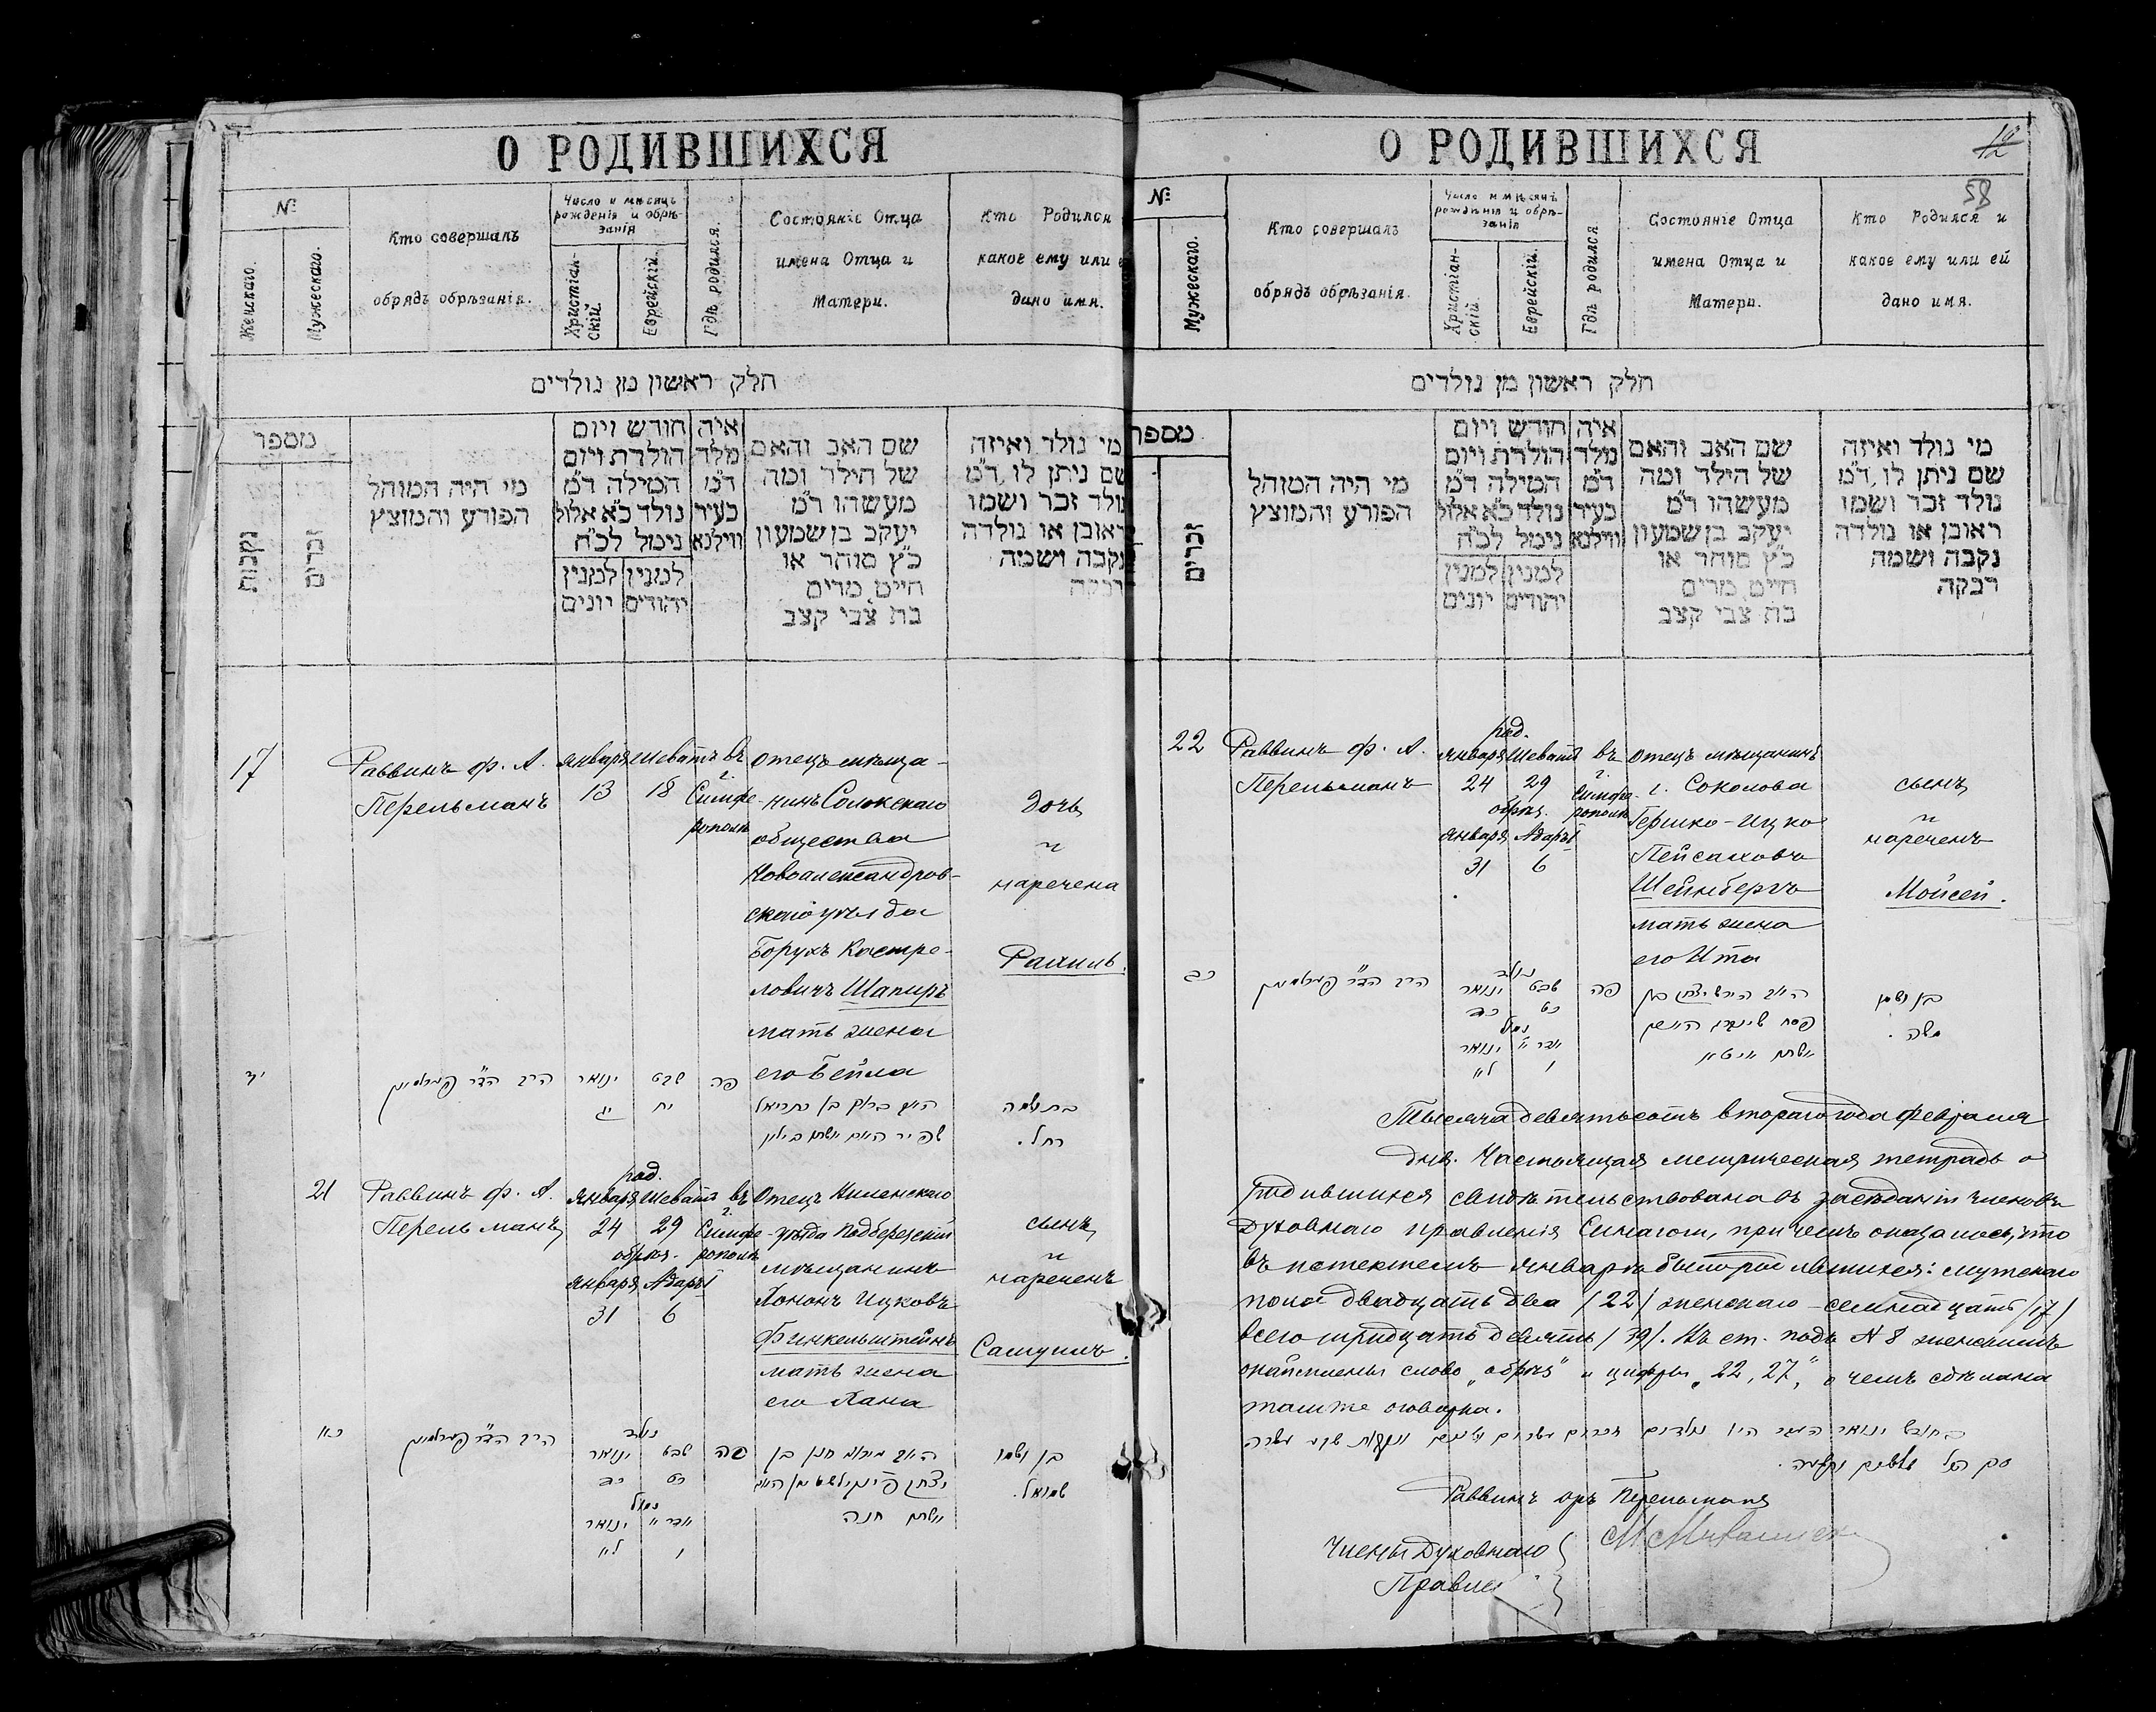 О РОДИВШИХСЯ
№
Женскаго.
Мужескаго.
Кто совершалъ
обрядъ обрѣзанія.
Число и мѣсяцъ
рожденія и обрѣ-
занія
Христіан-
скій.
Еврейскій.
Гдѣ родился.
Состояніе Отца
имена Отца и
Матери.
Кто Родился
какое ему или е
дано имя.
חלק ראשון מן נולדים
מספר
נקבות
זכרים
מי היה המוהל
הפורע והמוצץ
חודש ויום
הולדת ויום
המילה ד"מ
נולד כ"א אלול
נימל לכ"ח
למנין למנין
יהודים יונים
איה
מלד
ד"מ
בעיר
ווילנא
שם האב והאם
של הילד ומה
מעשהו ד"מ
יעקב בן שמעון
כ"ץ סוחר או
חייט, מרים
בת צבי קצב
מי נולד ואיזה
שם ניתן לו, ד"מ
נולד זכר ושמו
ראובן או נולדה
נקבה ושמה
רבקה
17
Раввинъ ф. А.
Перельманъ
Января Шеватъ
13 18
въ
г.
Симфе-
рополѣ
Отецъ мѣща-
нинъ Солокскаго
общества
Новоалександров-
скаго уѣзда
Борухъ
ловичъ Шапиръ
мать жена
его Бейла
дочь
и
наречена
Рахиль.
הרב הד"ר פערלמאן
ינואר שבט
יג יח
פה
בת ושמה
רחל.
21
Раввинъ ф. А.
Перельманъ
род.
Января Шеватъ
24 29
обрѣз.
Января Адаръ I
31 6
въ
г.
Симфе-
рополѣ
Отецъ Виленскаго
уѣзда Подберезскій
мѣщанинъ
Хононъ Ицковъ
Финкельштейнъ
мать жена
его Хана
сынъ
и
нареченъ
Самуилъ.
כא
הרב הד"ר פערלמאן
נולד
ינואר שבט
כד כט
נמול
ינואר אדר א
לא ו
פה
בן ושמו
שמואל.
О РОДИВШИХСЯ
12
58
№
Мужескаго.
Кто совершалъ
обрядъ обрѣзанія.
Число и мѣсяцъ
рожденія и обрѣ-
занія
Христіан-
скій.
Еврейскій.
Гдѣ родился
Состояніе Отца
имена Отца и
Матери.
Кто Родился и
какое ему или ей
дано имя.
חלק ראשון מן נולדים
מספר
זכרים
מי היה המוהל
הפורע והמוצץ
חודש ויום
הולדת ויום
המילה ד"מ
נולד כ"א אלול
נימל לכ"ח
למנין למנין
יהודים יונים
איה
מלד
ד"מ
בעיר
ווילנא
שם האב והאם
של הילד ומה
מעשהו ד"מ
יעקב בן שמעון
כ"ץ סוחר או
חייט, מרים
בת צבי קצב
מי נולד ואיזה
שם ניתן לו, ד"מ
נולד זכר ושמו
ראובן או נולדה
נקבה ושמה
רבקה
22
Раввинъ ф. А.
Перельманъ
род.
Января Шеватъ
24 29
обрѣз.
Января Адаръ I
31 6
въ
г.
Симфе-
рополѣ
Отецъ мѣщанинъ
г. Соколова
Гершко-Ицко
Пейсаховъ
Шейнбергъ
мать жена
его Ита
сынъ
и
нареченъ
Мойсей.
כב
הרב הד"ר פערלמאן
נולד
ינואר שבט
כד כט
נמול
ינואר אדר א
לא ו
פה
בן ושמו
משה.
Тысяча девятьсотъ второго года февраля
дня. Настоящая метрическая тетрадь о
родившихся свидѣтельствована въ засѣданіи членовъ
Духовнаго Правленія Синагоги, при чемъ оказалось, что
въ истекшемъ Январѣ было родившихся: мужескаго
пола двадцать два /22/ женскаго – семнадцать /17/
всего тридцать девять /39/. Въ ст. подъ № 8 женскимъ
слово „обрѣз" и цифры „22, 27", о чемъ сдѣлана
тамже оговорка.
Раввинъ Перельманъ
Члены Духовнаго
Правле